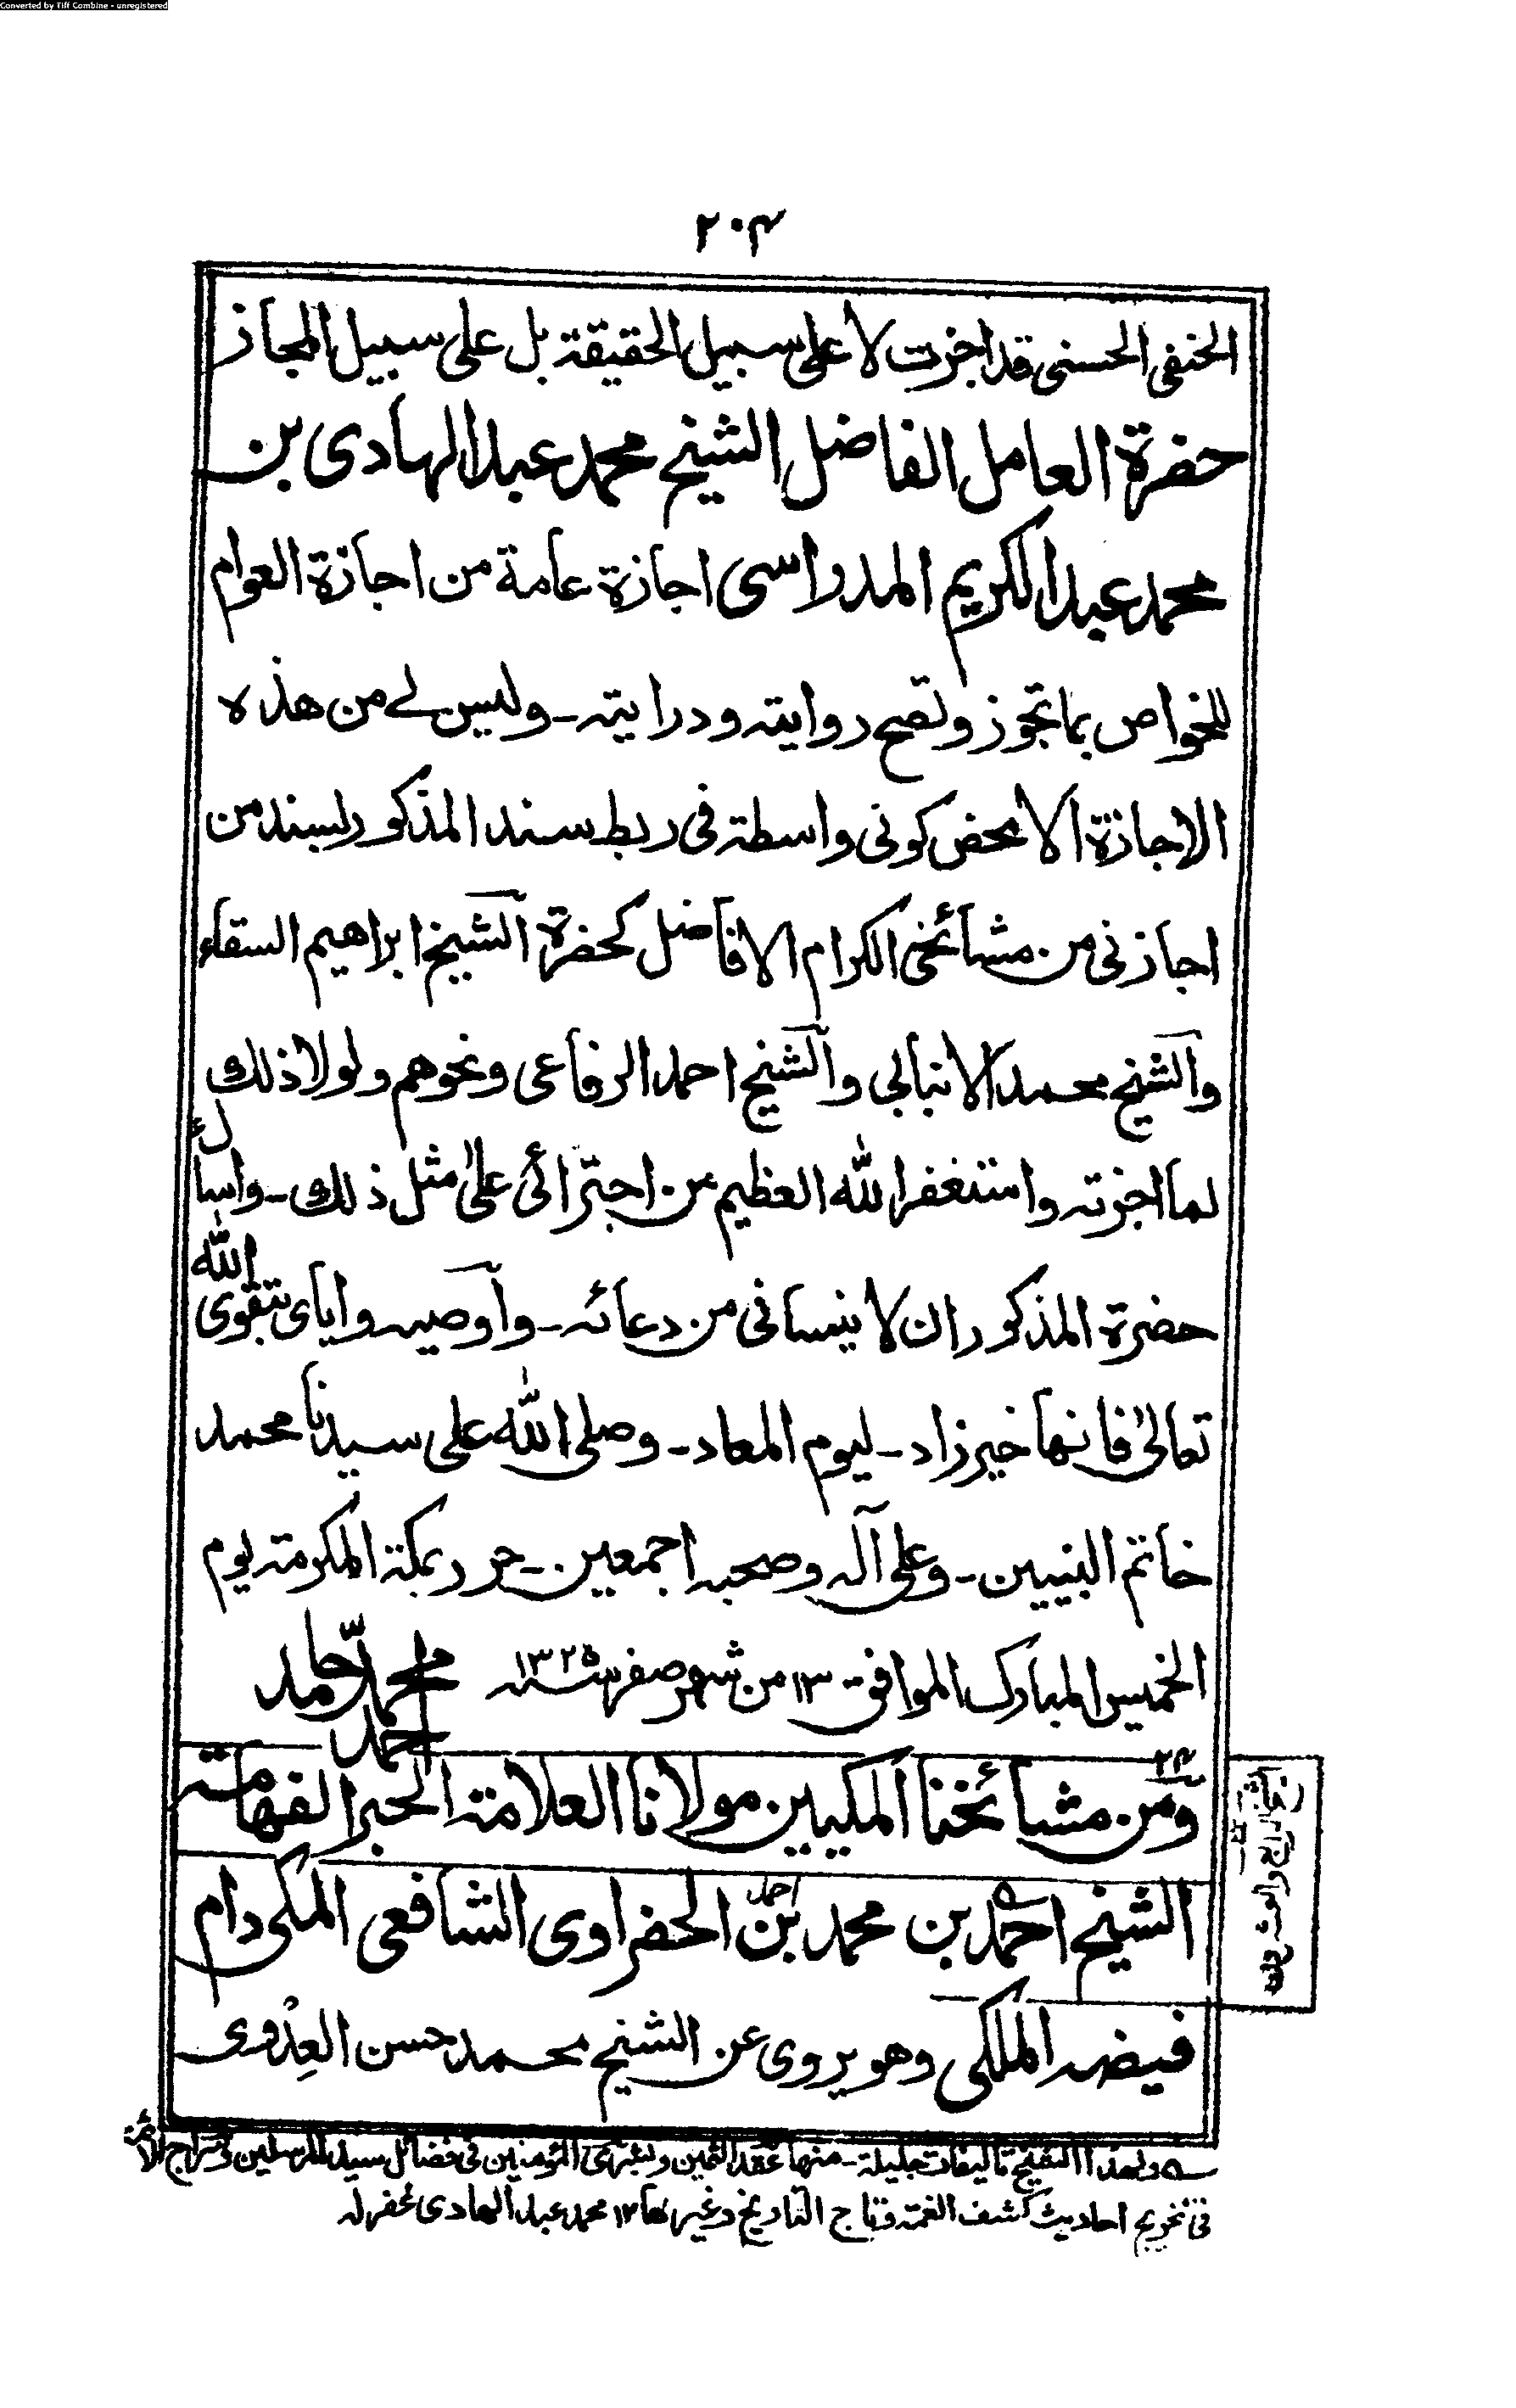 Converted by Tiff Combine - unregistered
۲۰۴
الحنفى الحسنى قد اجزت لا على سبيل الحقيقة بل على سبيل المجاز
حضرة العامل الفاضل الشيخ محمد عبدالهادى بن
محمد عبدالكريم المدراسى اجازة عامة من اجازة العوام
للخواص بما تجوز وتصح روايته ودرايته ـ وليس لے من هذه
الاجازة الا محض كونى واسطة فى ربط سند المذكور بسند من
اجازنى من مشائخى الكرام الافاضل كحضرة الشيخ ابراهيم السقاء
والشيخ محمد الانبابى والشيخ احمد الرفاعى ونحوهم ولولا ذلك
لما اجزته واستغفر الله العظيم من اجترائى على مثل ذلك ـ واسأل
حضرة المذكور ان لا ينسانى من دعائه ـ وأوصيه واياى بتقوى الله
تعالى فانها خير زاد ـ ليوم المعاد ـ وصلى الله على سيدنا محمد
خاتم النبيين ـ وعلى آله وصحبه اجمعين ـ حرر بمكة المكرمة يوم
الخميس المبارك الموافق ۱۳ من شهر صفر سنه ۱۳۲۵ محمد حامد
احمد
۲۴
ومن مشائخنا المكيين مولانا العلامة الحبر الفهامة
الشيخ احمد بن محمد بن احمد الحضراوى الشافعى المكى دام
فيضه الملكى وهو يروى عن الشيخ محمد حسن العِدْوى
ے ولهذا الشيخ تاليفات جليلة ـ منها عقد الثمين وبشرى المؤمنين فى فضائل سيد المرسلين وسراج الأمة
فى تخريج احاديث كشف الغمة وتاج التاريخ وغيرها ۱۲ محمد عبدالهادى غفرله